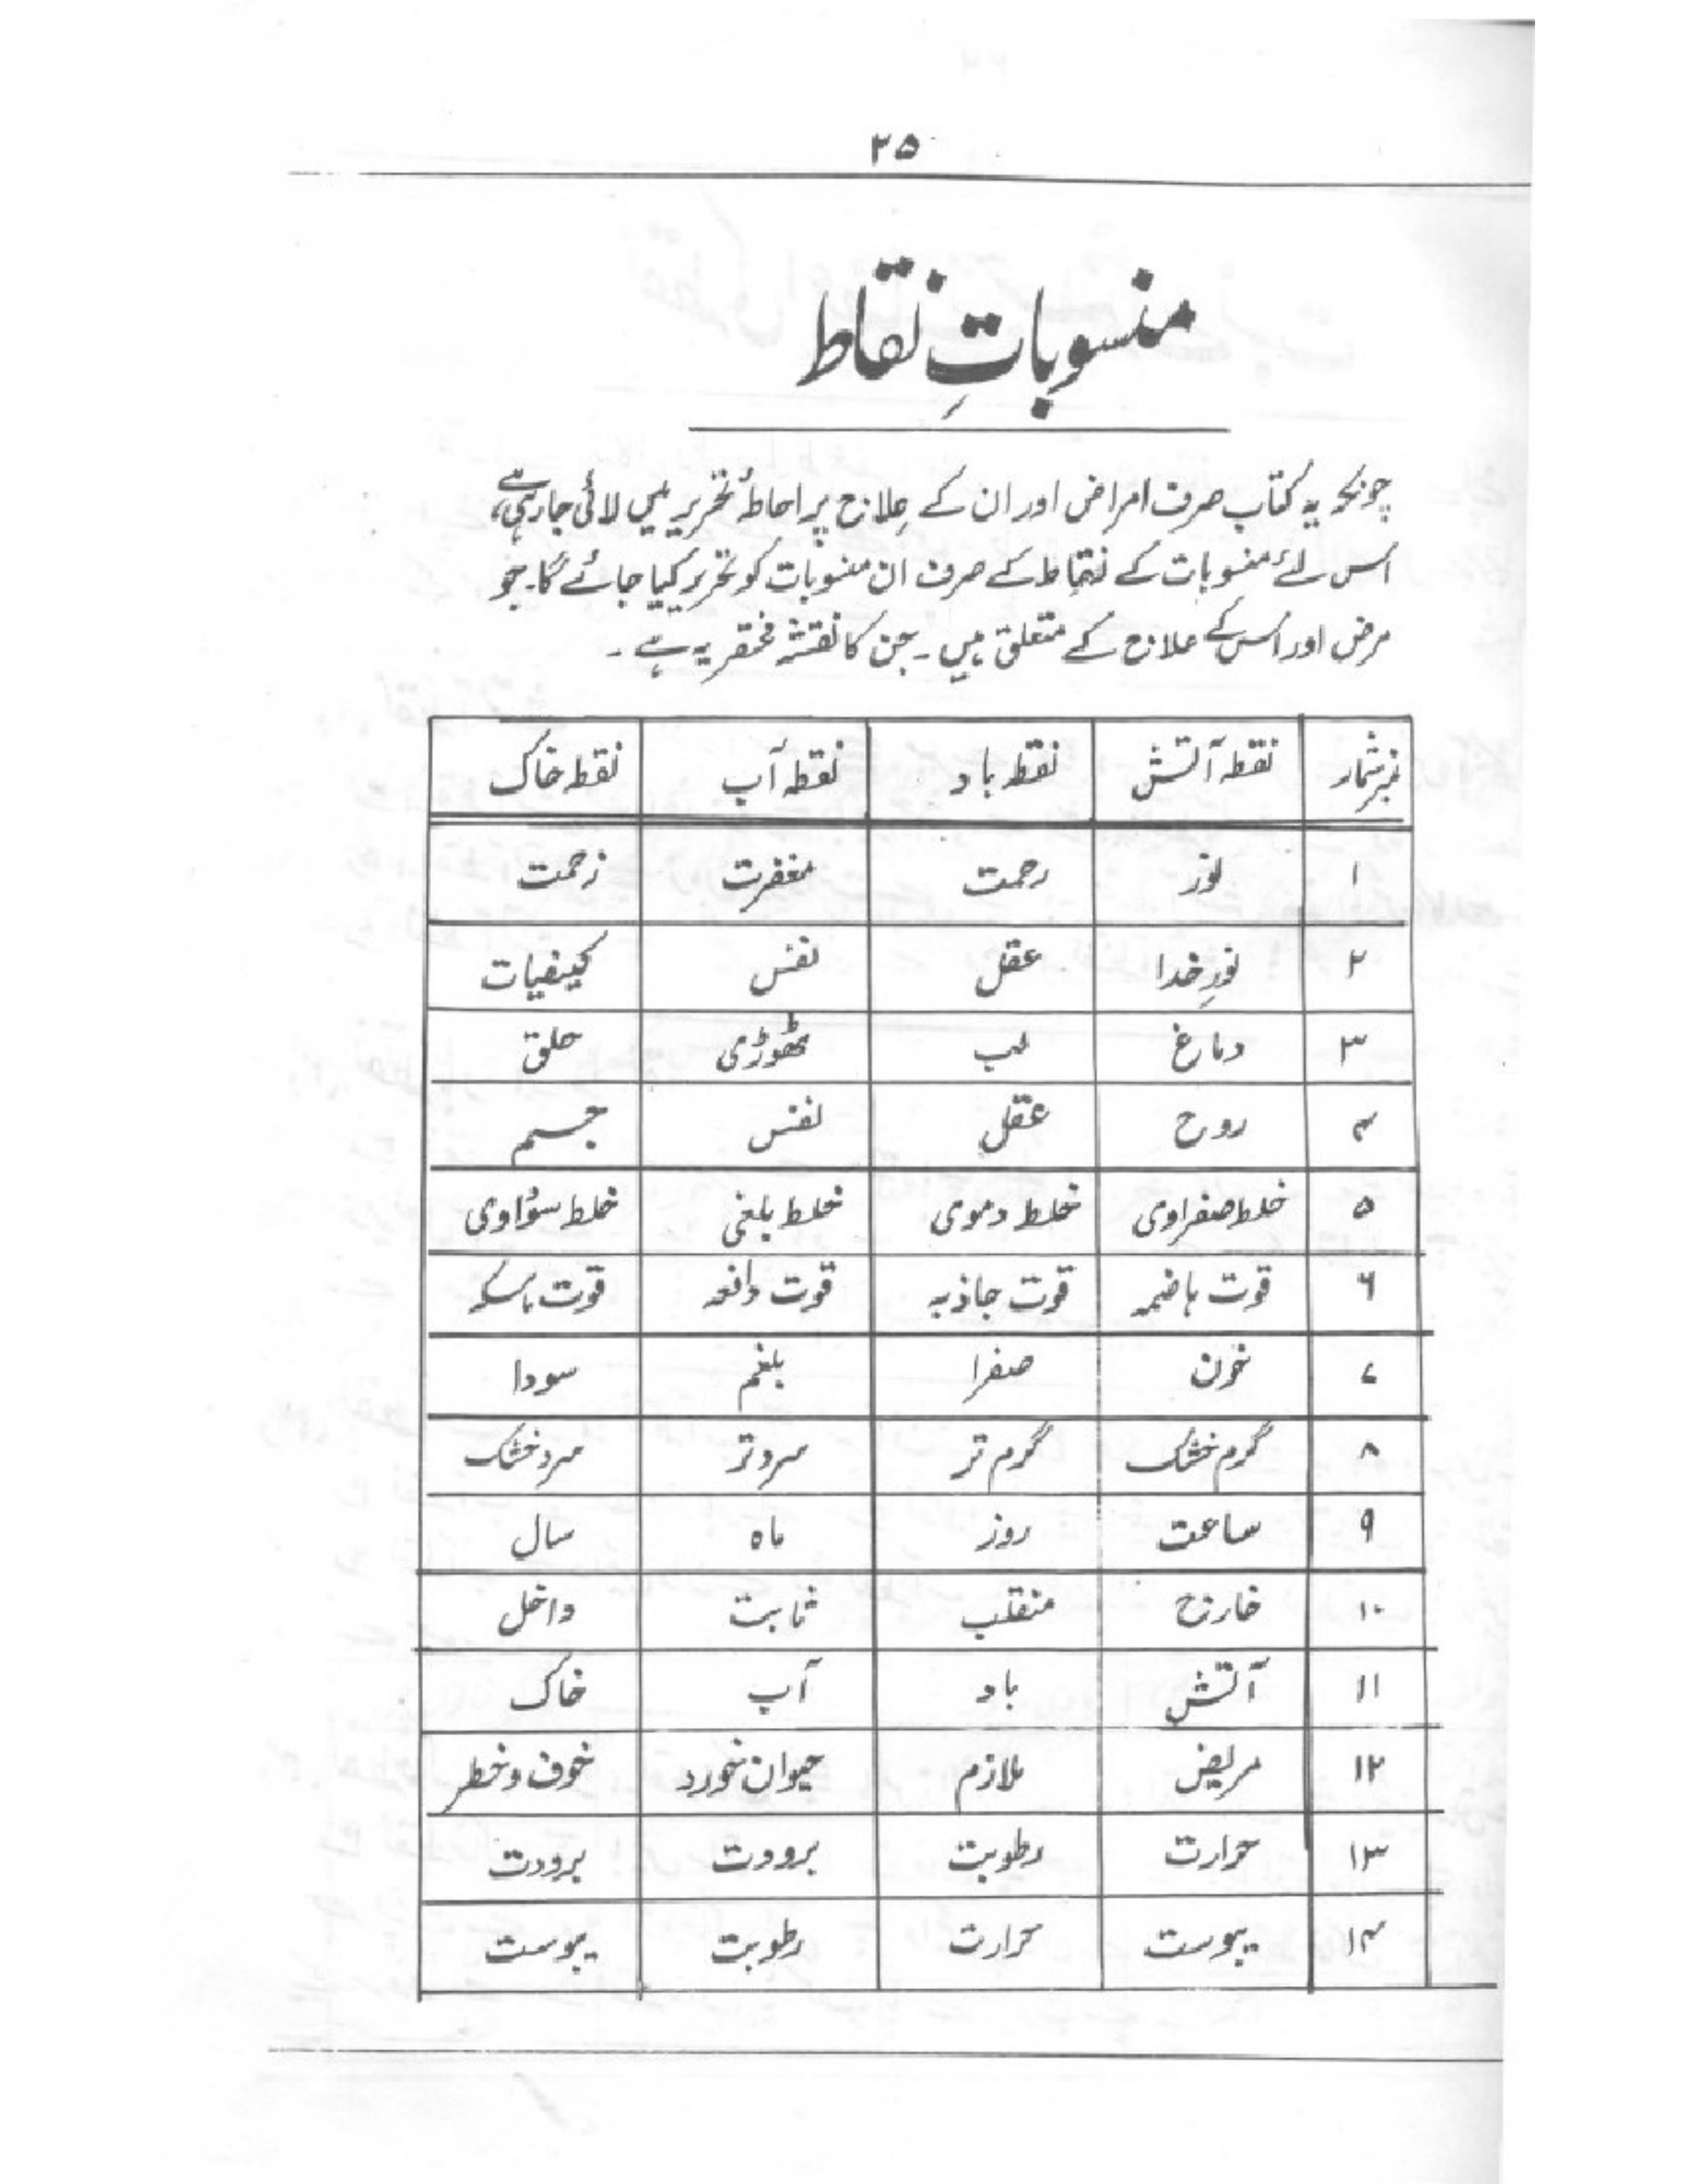 ۲۵
منسوباتِ نقاط
چونکہ یہ کتاب صرف امراض اور ان کے علاج پر احاطۂ تحریر میں لائی جا رہی ہے،
اس لئے منسوبات کے نقاط کے صرف اُن منسوبات کو تحریر کیا جائے گا۔ جو
مرض اور اُس کے علاج کے متعلق ہیں۔ جن کا نقشہ مختصر یہ ہے۔
نمبر شمار نقطہ آتش نقطہ باد نقطہ آب نقطہ خاک
۱ نور رحمت مغفرت زحمت
۲ نورِ خدا عقل نفس کیفیات
۳ دماغ لب ٹھوڑی حلق
۴ روح عقل نفس جسم
۵ خلط صفراوی خلط دموی خلط بلغمی خلط سوداوی
۶ قوت ہاضمہ قوت جاذبہ قوت دافعہ قوت ماسکہ
۷ خون صفرا بلغم سودا
۸ گرم خشک گرم تر سرد تر سرد خشک
۹ ساعت روز ماہ سال
۱۰ خارج منقلب ثابت داخل
۱۱ آتش باد آب خاک
۱۲ مریض ملازم حیوان خورد خوف و خطر
۱۳ حرارت رطوبت برودت برودت
۱۴ یبوست حرارت رطوبت یبوست